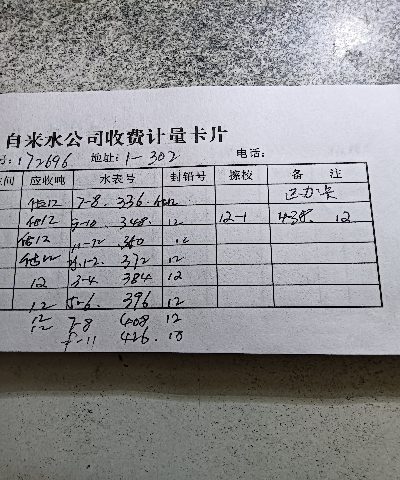 自来水公司收费计量卡片
号:172696 地址:1-302 电话:
间 应收吨 水表号 封铅号 擦校 备 注
估12 7-8. 336.
估12 9-10. 348. 12 12-1 438. 12
估12 11-12 360 12
估12 1-2. 372 12
12 3-4 384 12
12 5-6. 396 12
12 7-8 408 12
12 9-11 426. 18